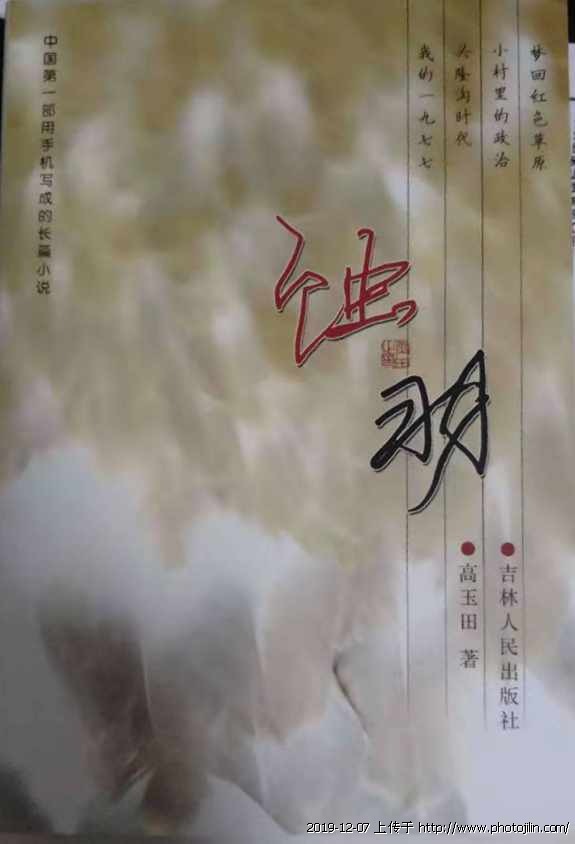 梦回红色草原
小村里的政治
兴隆沟时代
我的一九七七
中国第一部用手机写成的长篇小说
蚀
吉林人民出版社
高玉田 著
2019-12-07 上传于 http://www.photojilin.com/